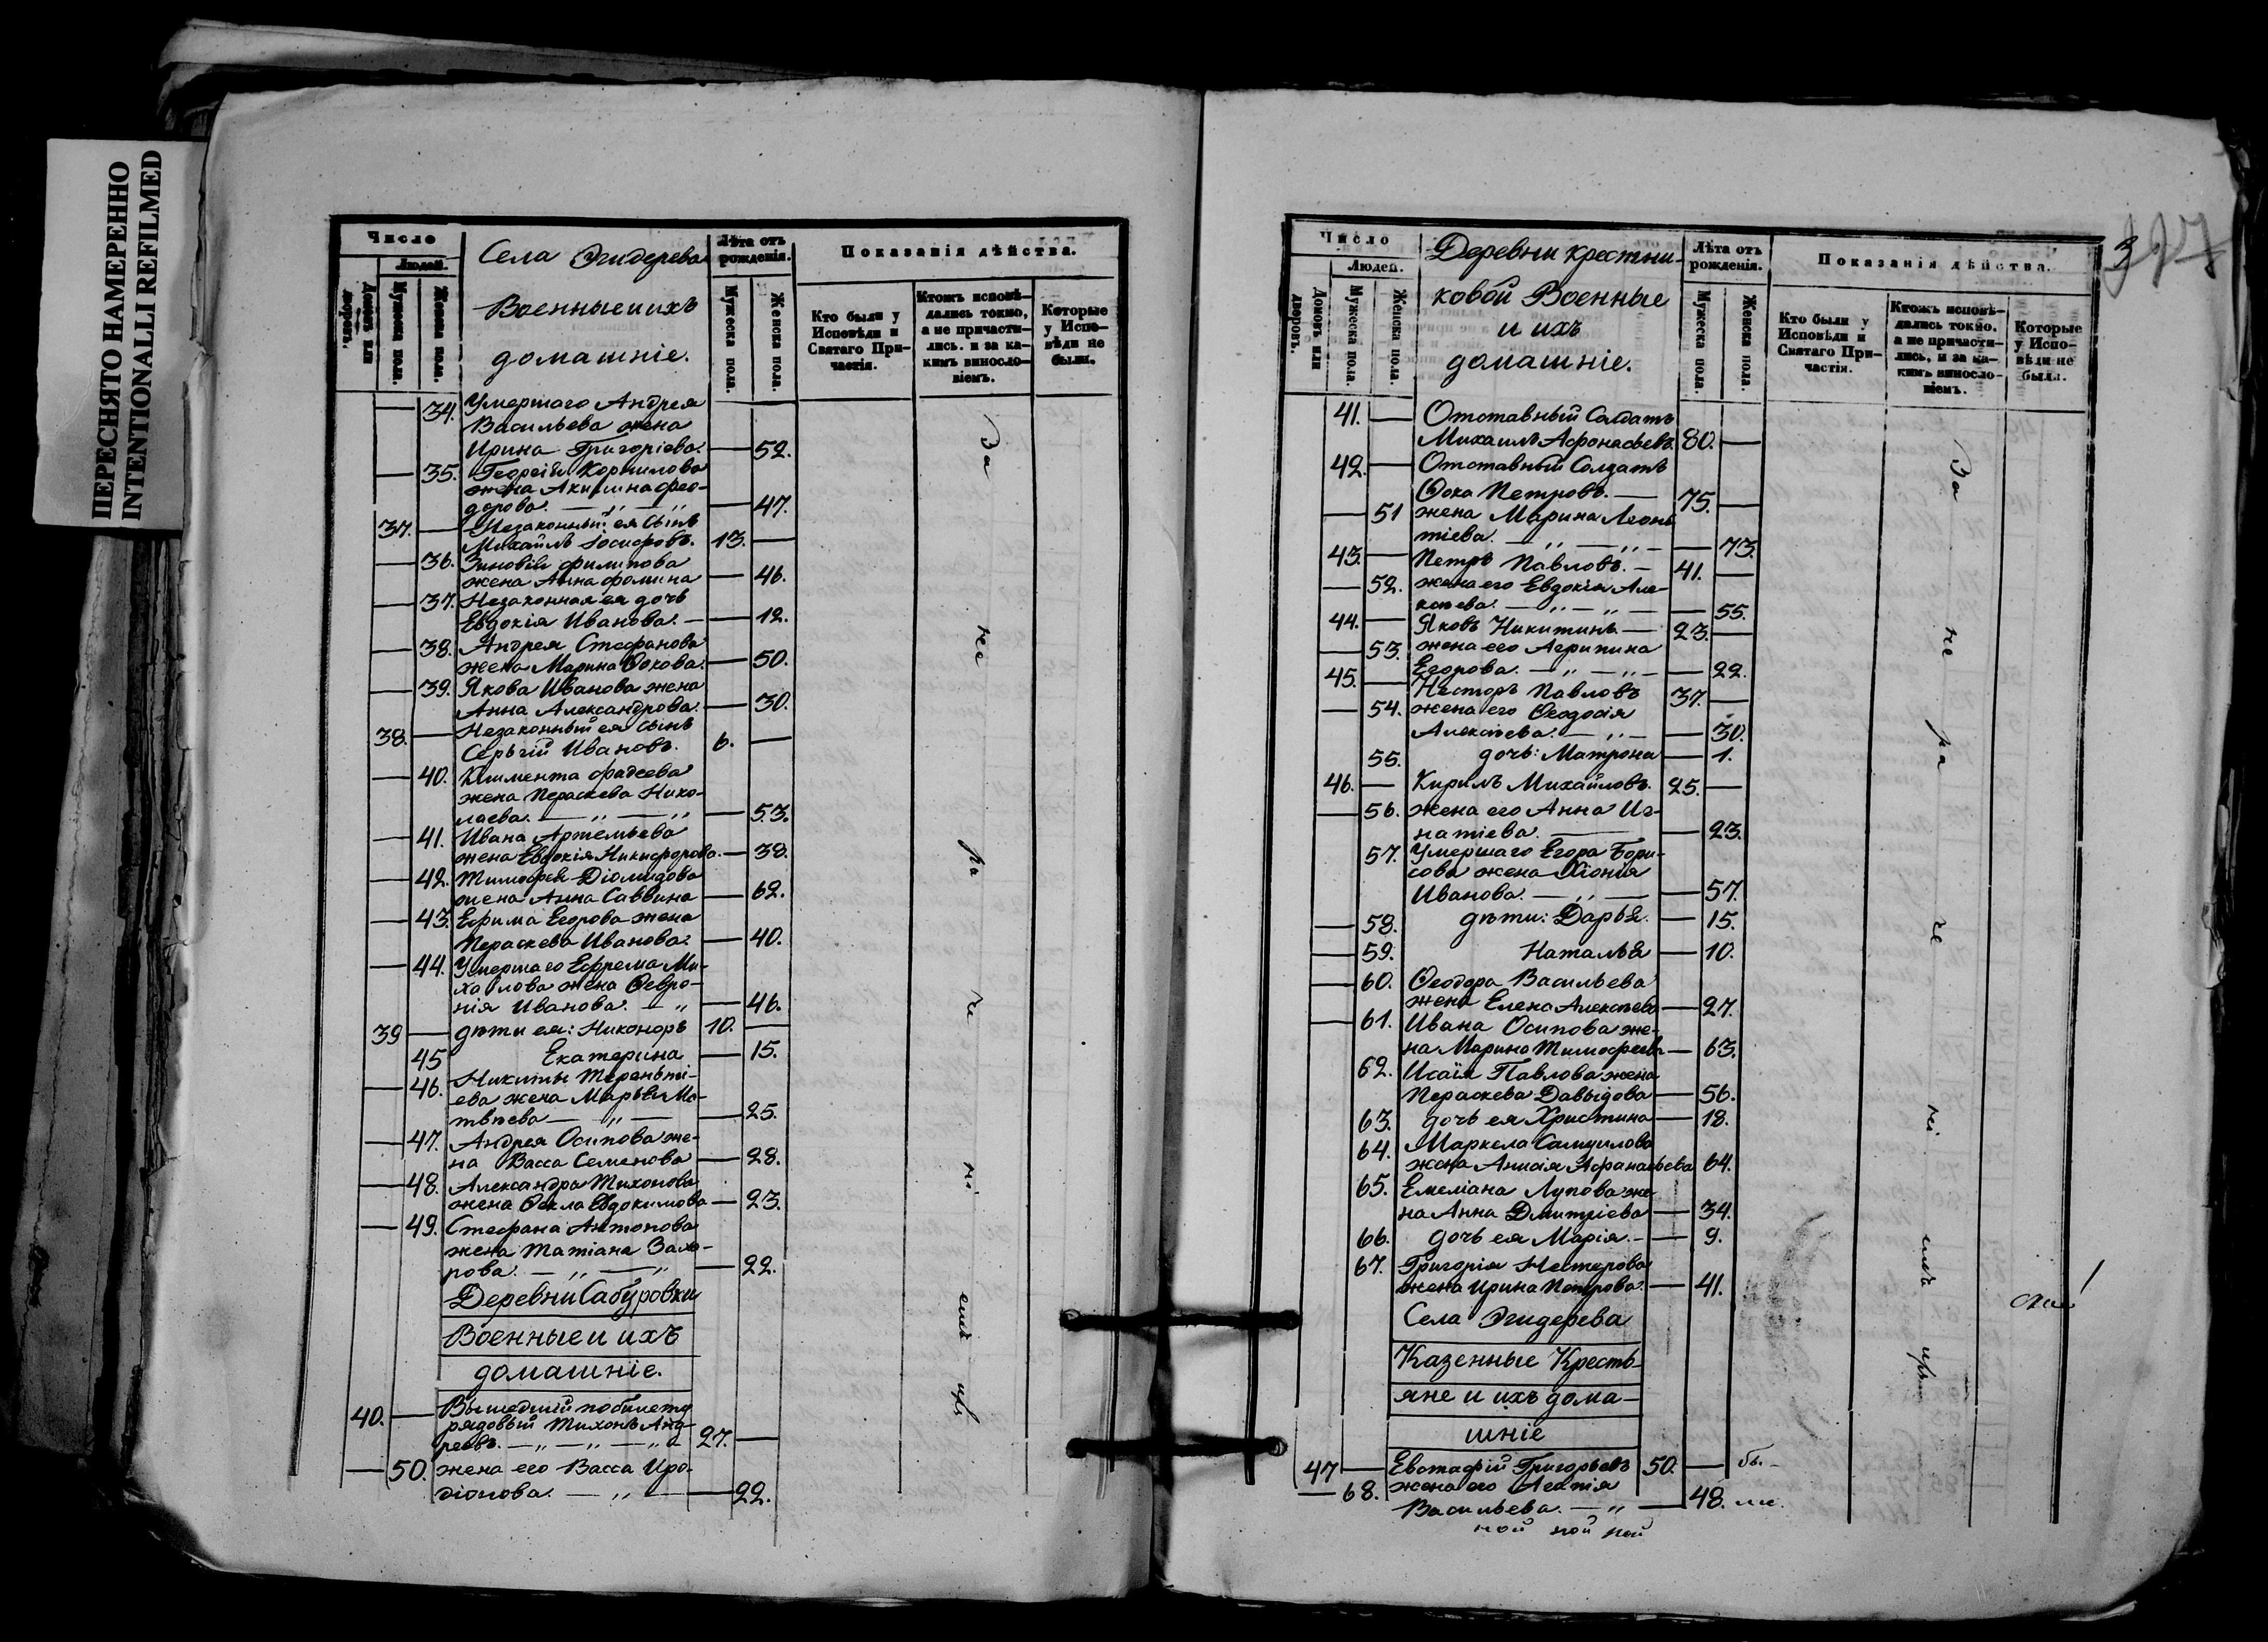 ПЕРЕСНЯТО НАМЕРЕННО
INTENTIONALLI REFILMED
Число
Людей.
Домовъ или дворовъ.
Мужеска пола.
Женска пола.
Села Эгидерева
Военные и ихъ
домашніе.
Лѣта отъ рожденія.
Мужеска пола.
Женска пола.
Показанія дѣйства.
Кто были у Исповѣди и Святаго Причастія.
Ктожъ исповѣдались токмо, а не причастились. и за какимъ винословіемъ.
Которые у Исповѣди не были.
— 34. Умершаго Андрея
Васильева жена
Ирина Григоріева. — 52.
— 35. Георгія Корнилова
жена Акилина Фео-
дорова. — „ — „ — 47.
37. — Незаконный ея сынъ
Михаилъ Іосифовъ. 13. —
— 36. Зиновія Филипова
жена Анна Фомина — 46.
— 37. Незаконная ея дочь
Евдокія Иванова. — — 12.
— 38. Андрея Стефанова
жена Марина Фокова. — 50.
— 39. Якова Иванова жена
Анна Александрова. — 30.
38. — Незаконный ея сынъ
Сергій Ивановъ. 6. —
— 40. Климента Фадеева
жена Параскева Нико-
лаева. — „ — „ — 53.
— 41. Ивана Артемьева
жена Евдокія Никифорова. — 38.
— 42. Тимофея Діомидова
жена Анна Саввина — 62.
— 43. Ефима Егорова жена
Параскева Иванова. — 40.
— 44. Умершаго Ефрема Ми-
хайлова жена Февро-
нія Иванова. — „ — 46.
39 — дѣти ея: Никоноръ 10. —
45 Екатерина — 15.
— 46. Никиты Теренті-
ева жена Марья Ма-
твѣева — „ — — 25.
— 47. Андрея Осипова же-
на Васса Семенова — 28.
— 48. Александра Тихонова
жена Фекла Евдокимова — 23.
— 49. Стефана Антонова
жена Татіана Заха-
рова. — „ — „ — 22.
Деревни Сабуровки
Военные и ихъ
домашніе.
40. — Вышедшій по билету
рядовый Тихонъ Анд-
реевъ. — „ — „ — „ 27. —
— 50. жена его Васса Иро-
діонова. — „ — — 22.
За не ра че ні емъ
3
Число
Людей.
Домовъ или дворовъ.
Мужеска пола.
Женска пола.
Деревни Крестни-
ковой Военные
и ихъ
домашніе.
Лѣта отъ рожденія.
Мужеска пола.
Женска пола.
Показанія дѣйства.
Кто были у Исповѣди и Святаго Причастія.
Ктожъ исповѣдались токмо. а не причастились, и за какимъ винословіемъ.
Которые у Исповѣди не были.
41. — Отставный Салдатъ
Михаилъ Афонасьевъ. 80. —
42. — Отставный Солдатъ
Фока Петровъ. — 75. —
— 51 жена Марина Леон-
тіева. — „ — „ — — 73.
43. — Петръ Павловъ. — 41. —
— 52. жена его Евдокія Але-
ксѣева. — „ — „ — — 55.
44. — Яковъ Никитинъ — 23. —
— 53. жена его Агрипина
Егорова. — „ — „ — — 22.
45. — Несторъ Павловъ 37. —
— 54. жена его Феодосія
Алексѣева. — „ — — 30.
55. дочь: Матрона — 1.
46. — Кирилъ Михайловъ. 25. —
— 56. жена его Анна Иг-
натіева. — — 23.
57. Умершаго Егора Бори-
сова жена Хіонія
Иванова. — „ — — 57.
— 58. дѣти: Дарья. — 15.
— 59. Наталья — 10.
— 60. Феодора Васильева
жена Елена Алексѣева — 27.
— 61. Ивана Осипова же-
на Марина Тимофеева — 63.
62. Исаія Павлова жена
Параскева Давыдова — 56.
63. дочь ея Христина — 18.
64. Маркела Самуилова
жена Анисія Афанасьева 64.
65. Емеліана Лупова же-
на Анна Дмитріева — 34.
66. дочь ея Марія. — — 9.
67. Григорія Нестерова
жена Ирина Петрова. — 41.
Села Эгидерева
Казенные Кресть-
яне и ихъ дома-
шніе
47 — Евстафій Григорьевъ 50. — бы-
— 68. жена его Агапія
Васильева. — „ — 48. ли.
ной ной ной
За не ра че ні емъ